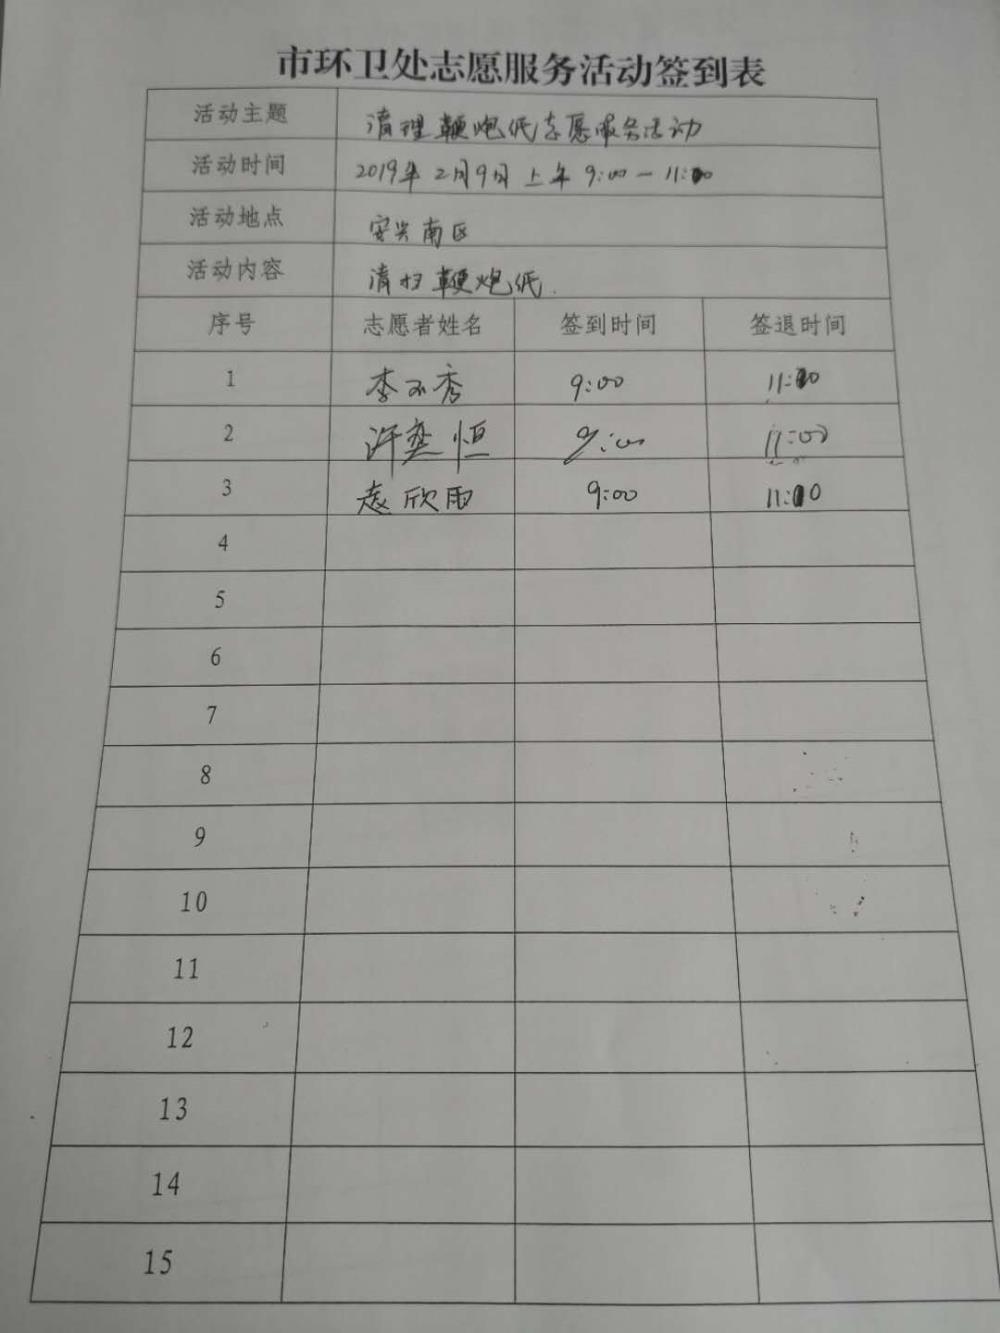 市环卫处志愿服务活动签到表
活动主题 清理鞭炮纸志愿服务活动
活动时间 2019年2月9日上午9:00-11:00
活动地点 安兴南区
活动内容 清扫鞭炮纸.
序号 志愿者姓名 签到时间 签退时间
1 李不秀 9:00 11:00
2 许奕恒 9:00 11:00
3 袁欣雨 9:00 11:00
4
5
6
7
8
9
10
11
12
13
14
15